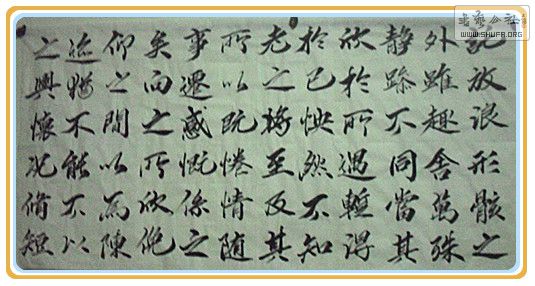 託放浪形骸之
外雖趣舍萬殊
静躁不同當其
欣於所遇暫得
於己怏然不知
老之將至及其
所以既惓情随
事遷感慨係之
矣向之所欣俛
仰之間以為陳
迹猶不能不以
之興懷况脩短
書藝公社
WWW.SHUFA.ORG